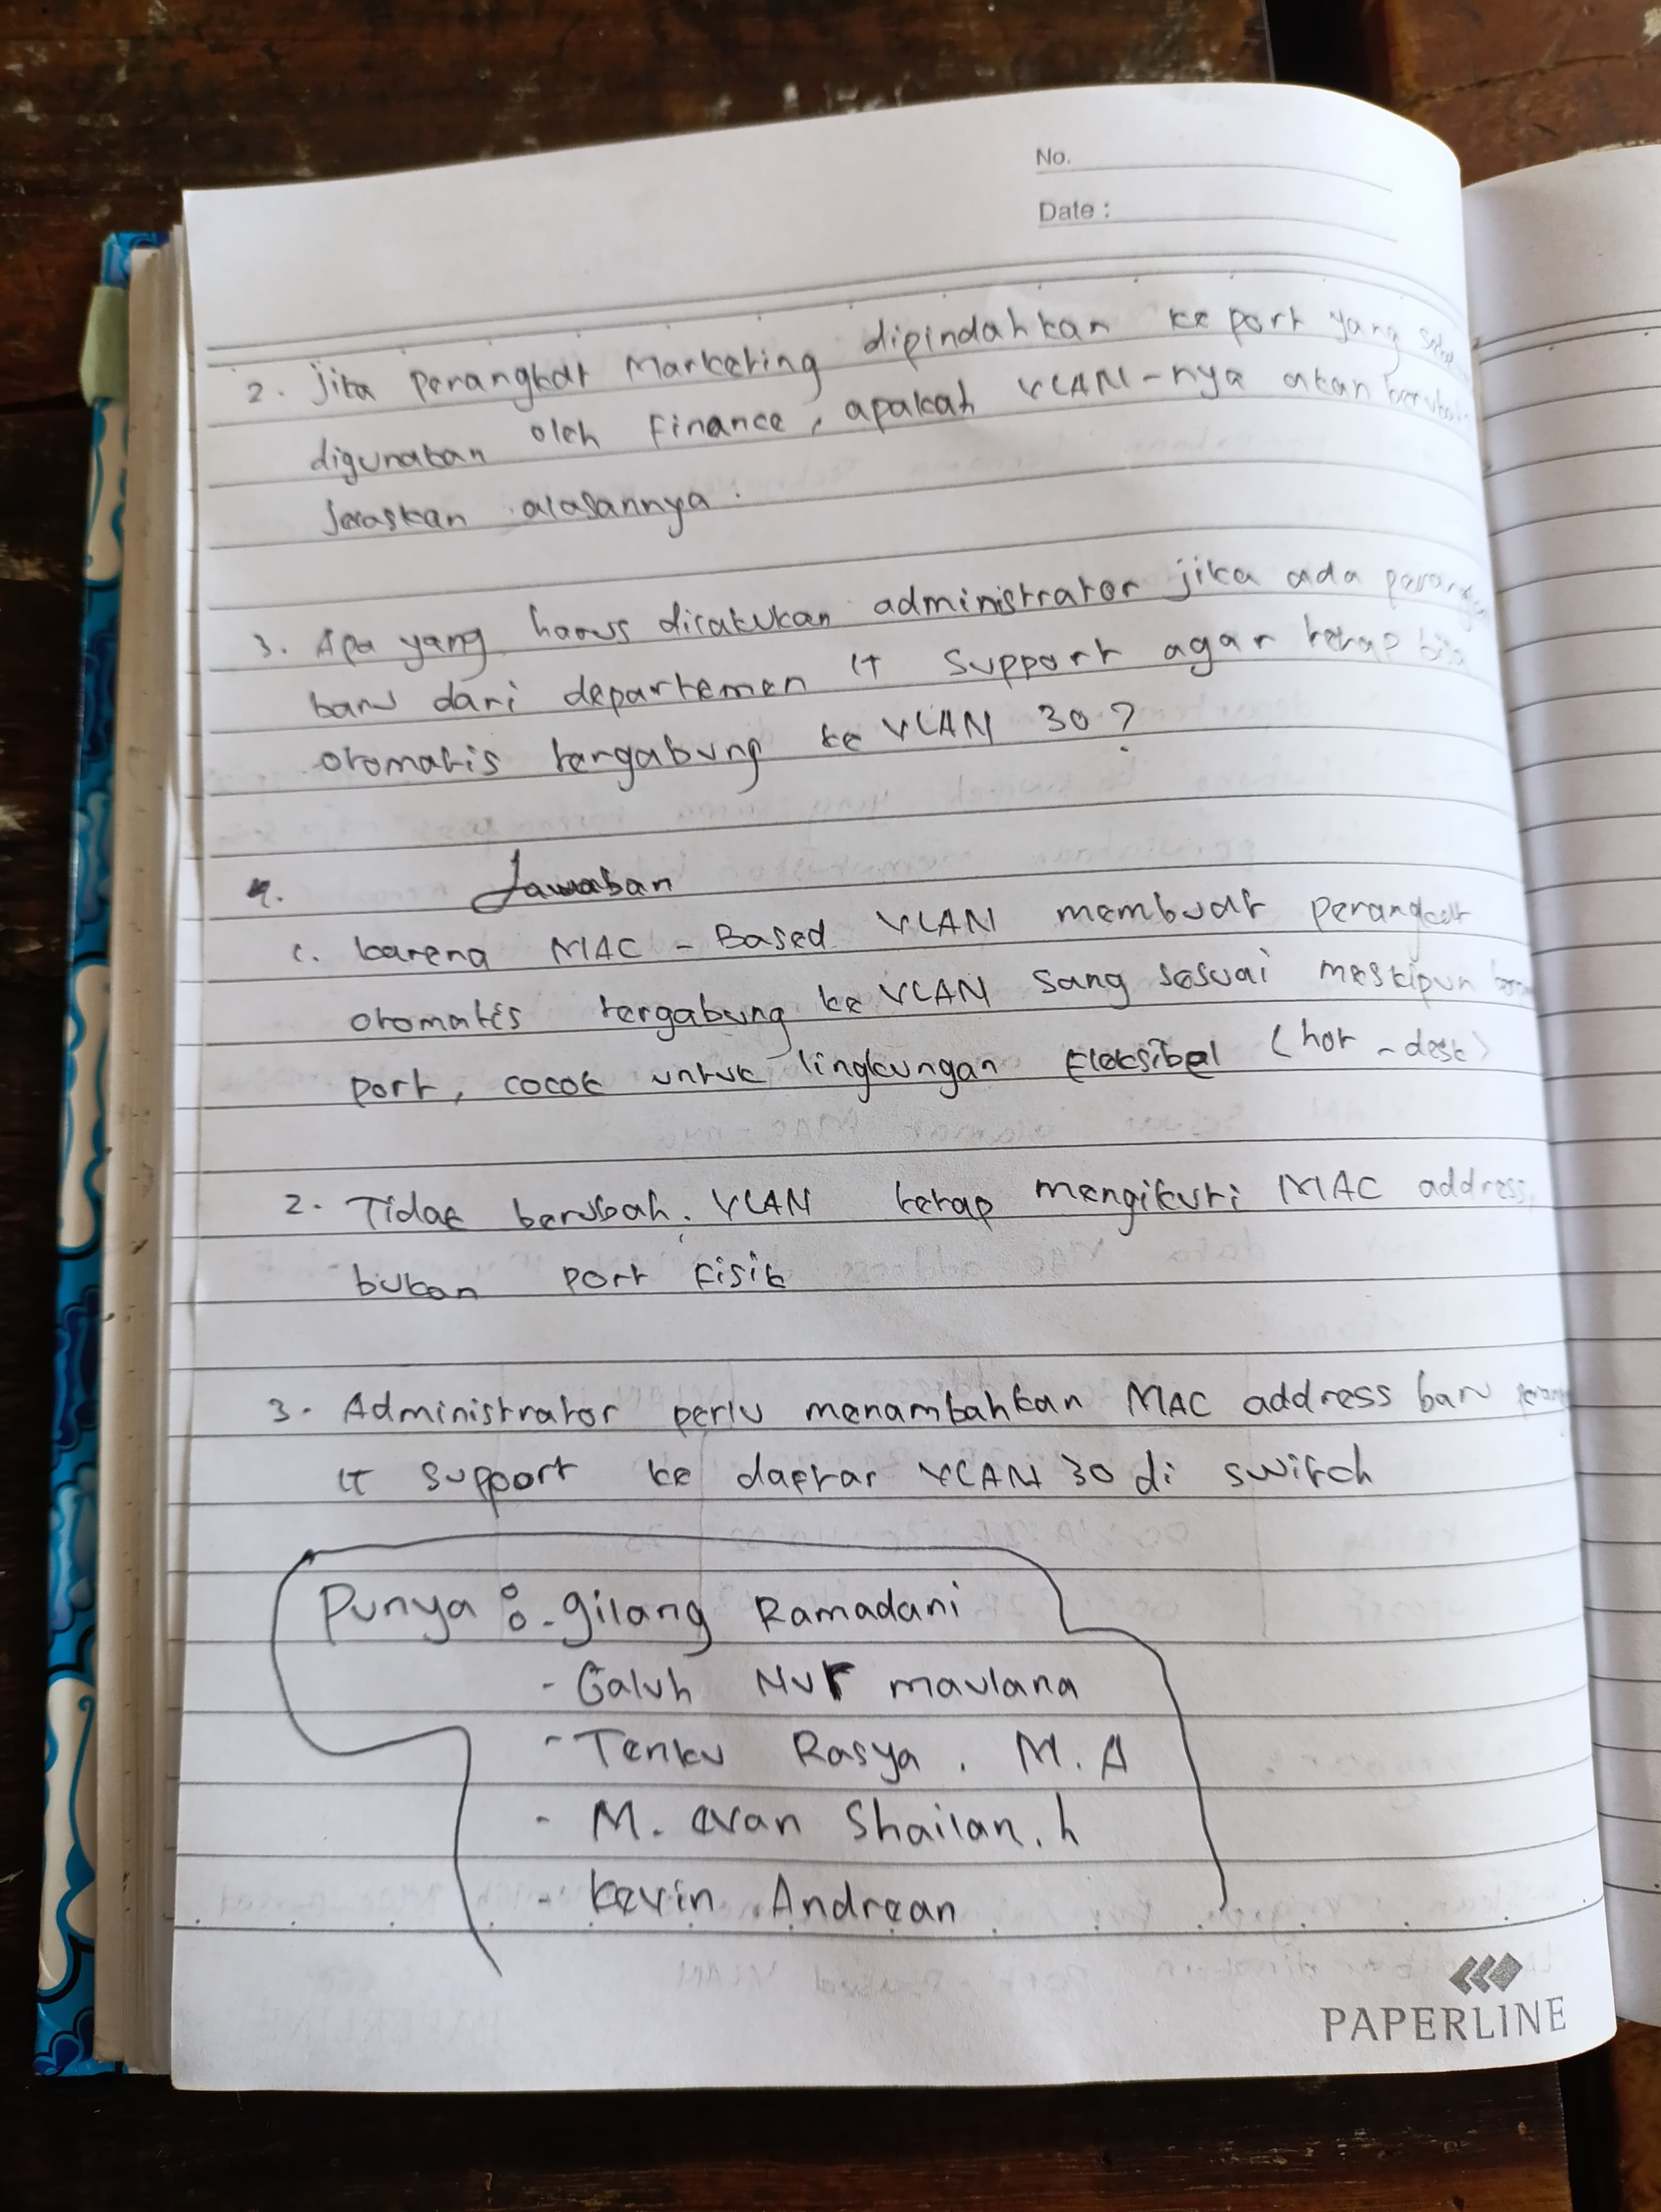 No.
Date :
2. Jika perangkat Marketing dipindahkan ke port yang
digunakan oleh Finance, apakah VLAN-nya akan berubah
Jelaskan alasannya.
3. Apa yang harus dilakukan administrator jika ada perangkat
baru dari departemen IT Support agar tetap bisa
otomatis tergabung ke VLAN 30?
4. Jawaban
1. karena MAC-Based VLAN membuat perangkat
otomatis tergabung ke VLAN sang sesuai meskipun
port, cocok untuk lingkungan fleksibel (hot-desk)
2. Tidak berubah. VLAN tetap mengikuti MAC address,
bukan port fisik
3. Administrator perlu menambahkan MAC address baru
IT support ke daftar VLAN 30 di switch
Punya : - gilang Ramadani
- Galuh Nur maulana
- Tenku Rasya . M.A
- M. evan Shailan. h
- kevin Andrean
PAPERLINE